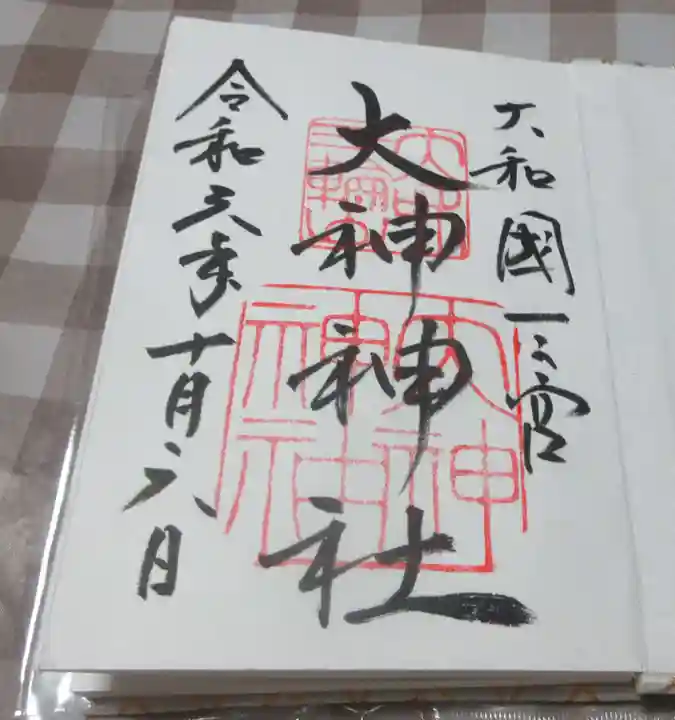 大和國一之宮
大神神社
令和三年十月六日
大神神社